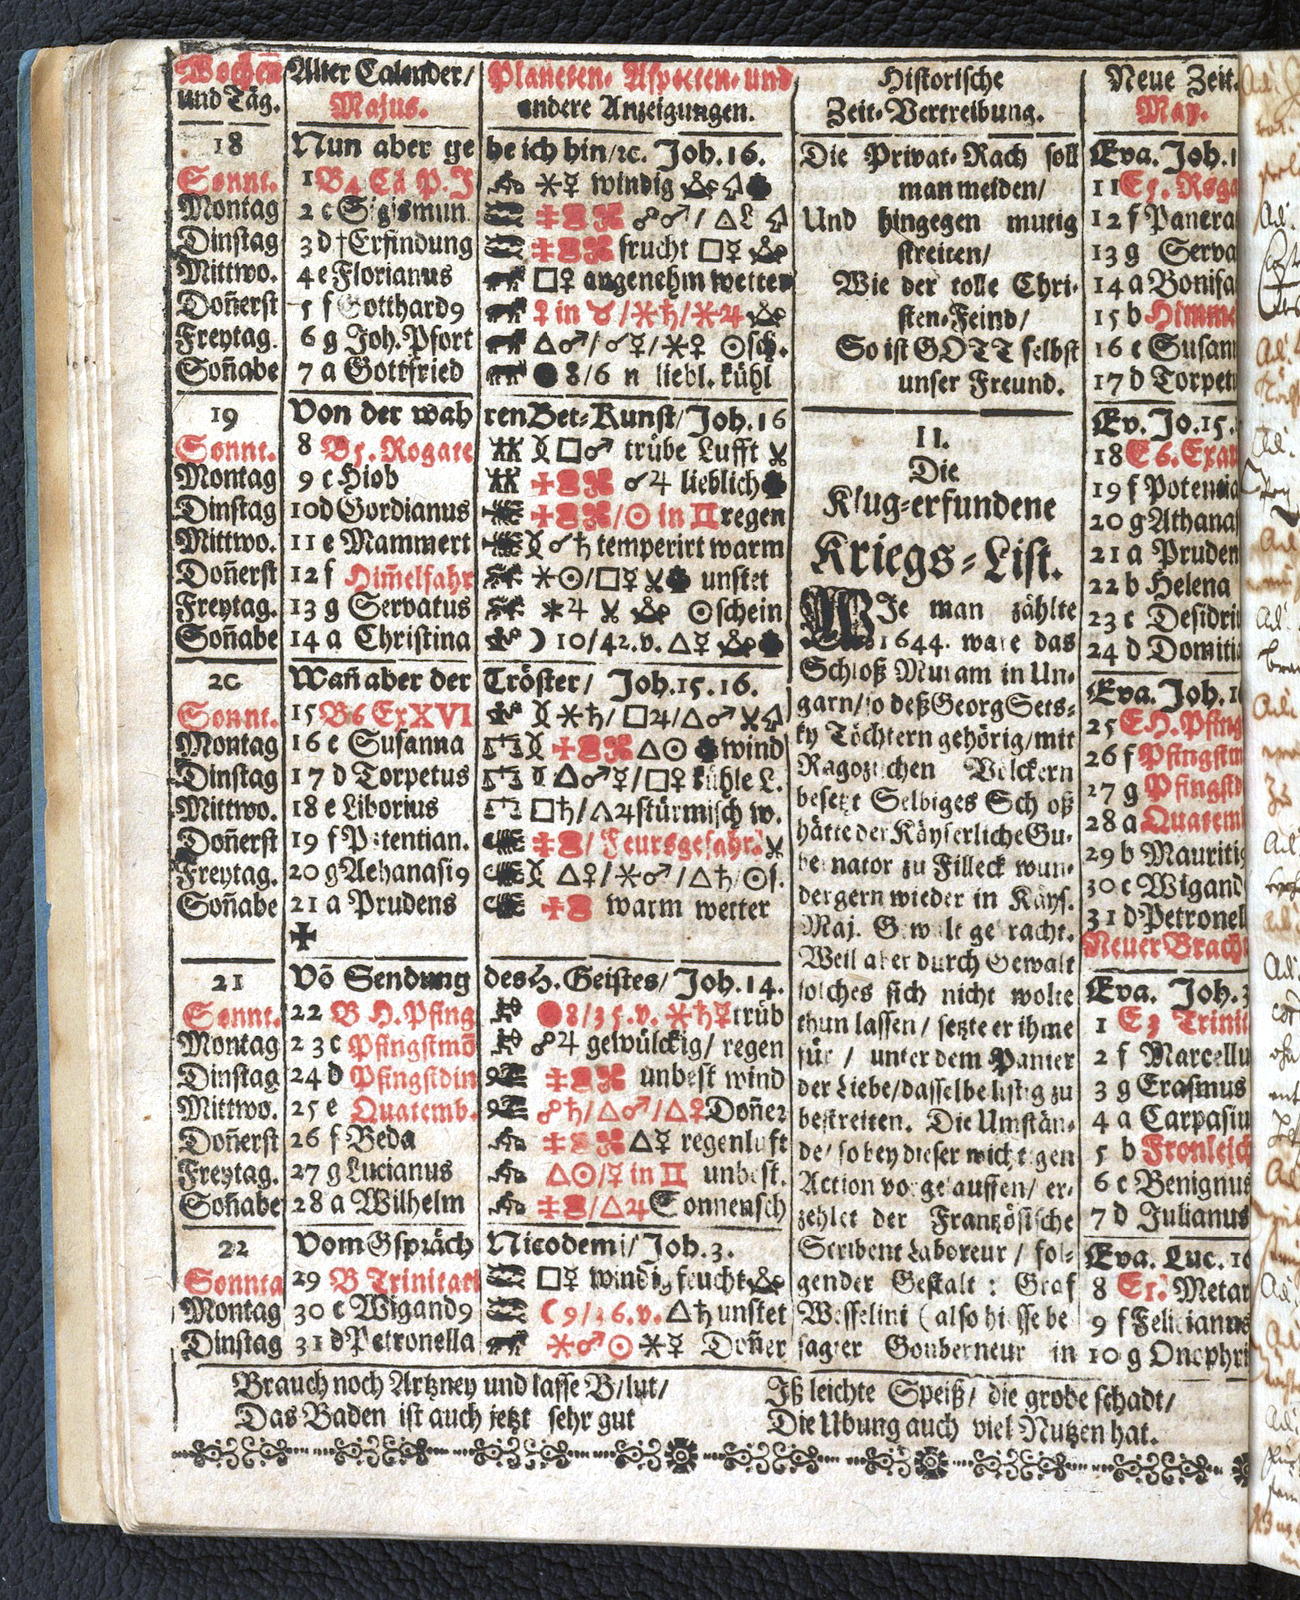 Wochen
und Täg.
18
Sonnt.
Montag
Dinstag
Mittwo.
Doñerst
Freytag.
Soñabe
19
Sonnt.
Montag
Dinstag
Mittwo.
Doñerst
Freytag.
Soñabe
20
Sonnt.
Montag
Dinstag
Mittwo.
Doñerst
Freytag.
Soñabe
21
Sonnt.
Montag
Dinstag
Mittwo.
Doñerst
Freytag.
Soñabe
22
Sonnta
Montag
Dinstag
Alter Calender/
Majus.
Nun aber ge
1 B4 Cã P. J
2 c Sigismun
3 d †Erfindung
4 e Florianus
5 f Gotthard9
6 g Joh. Pfort
7 a Gottfried
Von der wah
8 B5. Rogate
9 c Hiob
10 d Gordianus
11 e Mammert
12 f Him̃elfahr
13 g Servatus
14 a Christina
Wañ aber der
15 B6 ExXVI
16 e Susanna
17 d Torpetus
18 e Liborius
19 f Potentian.
20 g Athanasi9
21 a Prudens
✠
Võ Sendung
22 B H. Pfing
23 c Pfingstmõ
24 d Pfingstdin
25 e Quatemb.
26 f Beda
27 g Lucianus
28 a Wilhelm
Vom Gspräch
29 B Trinitaet
30 c Wigand9
31 d Petronella
Planeten- Aspecten- und
andere Anzeigungen.
be ich hin/ꝛc. Joh. 16.
⚹☿ windig
☍♂/ △
frucht □☿
□♀ angenehm wetter
♀ in ♉/⚹♄/⚹♃
△♂/☌☿/⚹♀ ☉sch.
● 8/6 n liebl. kühl
ren Bet-Kunst/ Joh. 16
□♂ trübe Lufft
☌♃ lieblich
/☉ in ♊ regen
☌♄ temperirt warm
⚹☉/□☿ unstet
⚹♃ ☉schein
☽ 10/42. v. △☿
Tröster/ Joh. 15. 16.
⚹♄/ □♃/△♂
△☉ wind
△♂☿/□♀ kühle L.
□♄/△♃ stürmisch w.
/ Feursgefahr.
△♀/⚹♂/△♄ ☉s.
warm wetter
des H. Geistes/ Joh. 14.
●8/35. v. ⚹♄☿ trüb
☍♃ gewülckig/ regen
unbest wind
☍♄/△♂/△♀ Doñer
△☿ regenluft
△☉/☿ in ♊ unbest.
/△♃ Sonnensch
Nicodemi/ Joh. 3.
□☿ windig feucht
☾ 9/16. v. △♄ unstet
⚹♂☉ ⚹☿ Doñer
Historische
Zeit-Vertreibung.
Die Privat-Rach soll
man meiden/
Und hingegen mutig
streiten/
Wie der tolle Chri-
sten-Feind/
So ist GOTT selbst
unser Freund.
II.
Die
Klug-erfundene
Kriegs-List.
WJe man zählte
1644. ware das
Schloß Muram in Un-
garn/so deß Georg Sets-
ky Töchtern gehörig/mit
Ragozischen Völckern
besetzt Selbiges Schloß
hätte der Käyserliche Gu-
bernator zu Filleck wun-
dergern wieder in Käys.
Maj. Gewalt gebracht.
Weil aber durch Gewalt
solches sich nicht wolte
thun lassen/ setzte er ihme
für / unter dem Panier
der Liebe/dasselbe lustig zu
bestreiten. Die Umstän-
de/ so bey dieser wichtigen
Action vorgelauffen/ er-
zehlet der Frantzösische
Scribent Laboreur / fol-
gender Gestalt: Graf
Wesselini (also hiesse be
sagter Gouberneur in
Neue Zeit.
May.
Eva. Joh. 1
11 E5. Roga
12 f Pancra
13 g Serva
14 a Bonifa
15 b Himme
16 c Susann
17 d Torpet
Ev. Jo. 15.
18 E6. Exau
19 f Potentia
20 g Athanas
21 a Pruden
22 b Helena
23 c Desidri
24 d Domitia
Eva. Joh. 1
25 E.H. Pfing
26 f Pfingstm
27 g Pfingstd
28 a Quatem
29 b Mauriti9
30 c Wigand
31 d Petronel
Neuer Brach
Eva. Joh. 3
1 E3 Trinit
2 f Marcellu
3 g Erasmus
4 a Carpasiu
5 b Fronleich
6 c Benignus
7 d Julianus
Eva. Luc. 16
8 E1. Metar
9 f Felicianus
10 g Onophri
Brauch noch Artzney und lasse B/lut/
Das Baden ist auch jetzt sehr gut
Iß leichte Speiß/ die grobe schadt/
Die Ubung auch viel Nutzen hat.